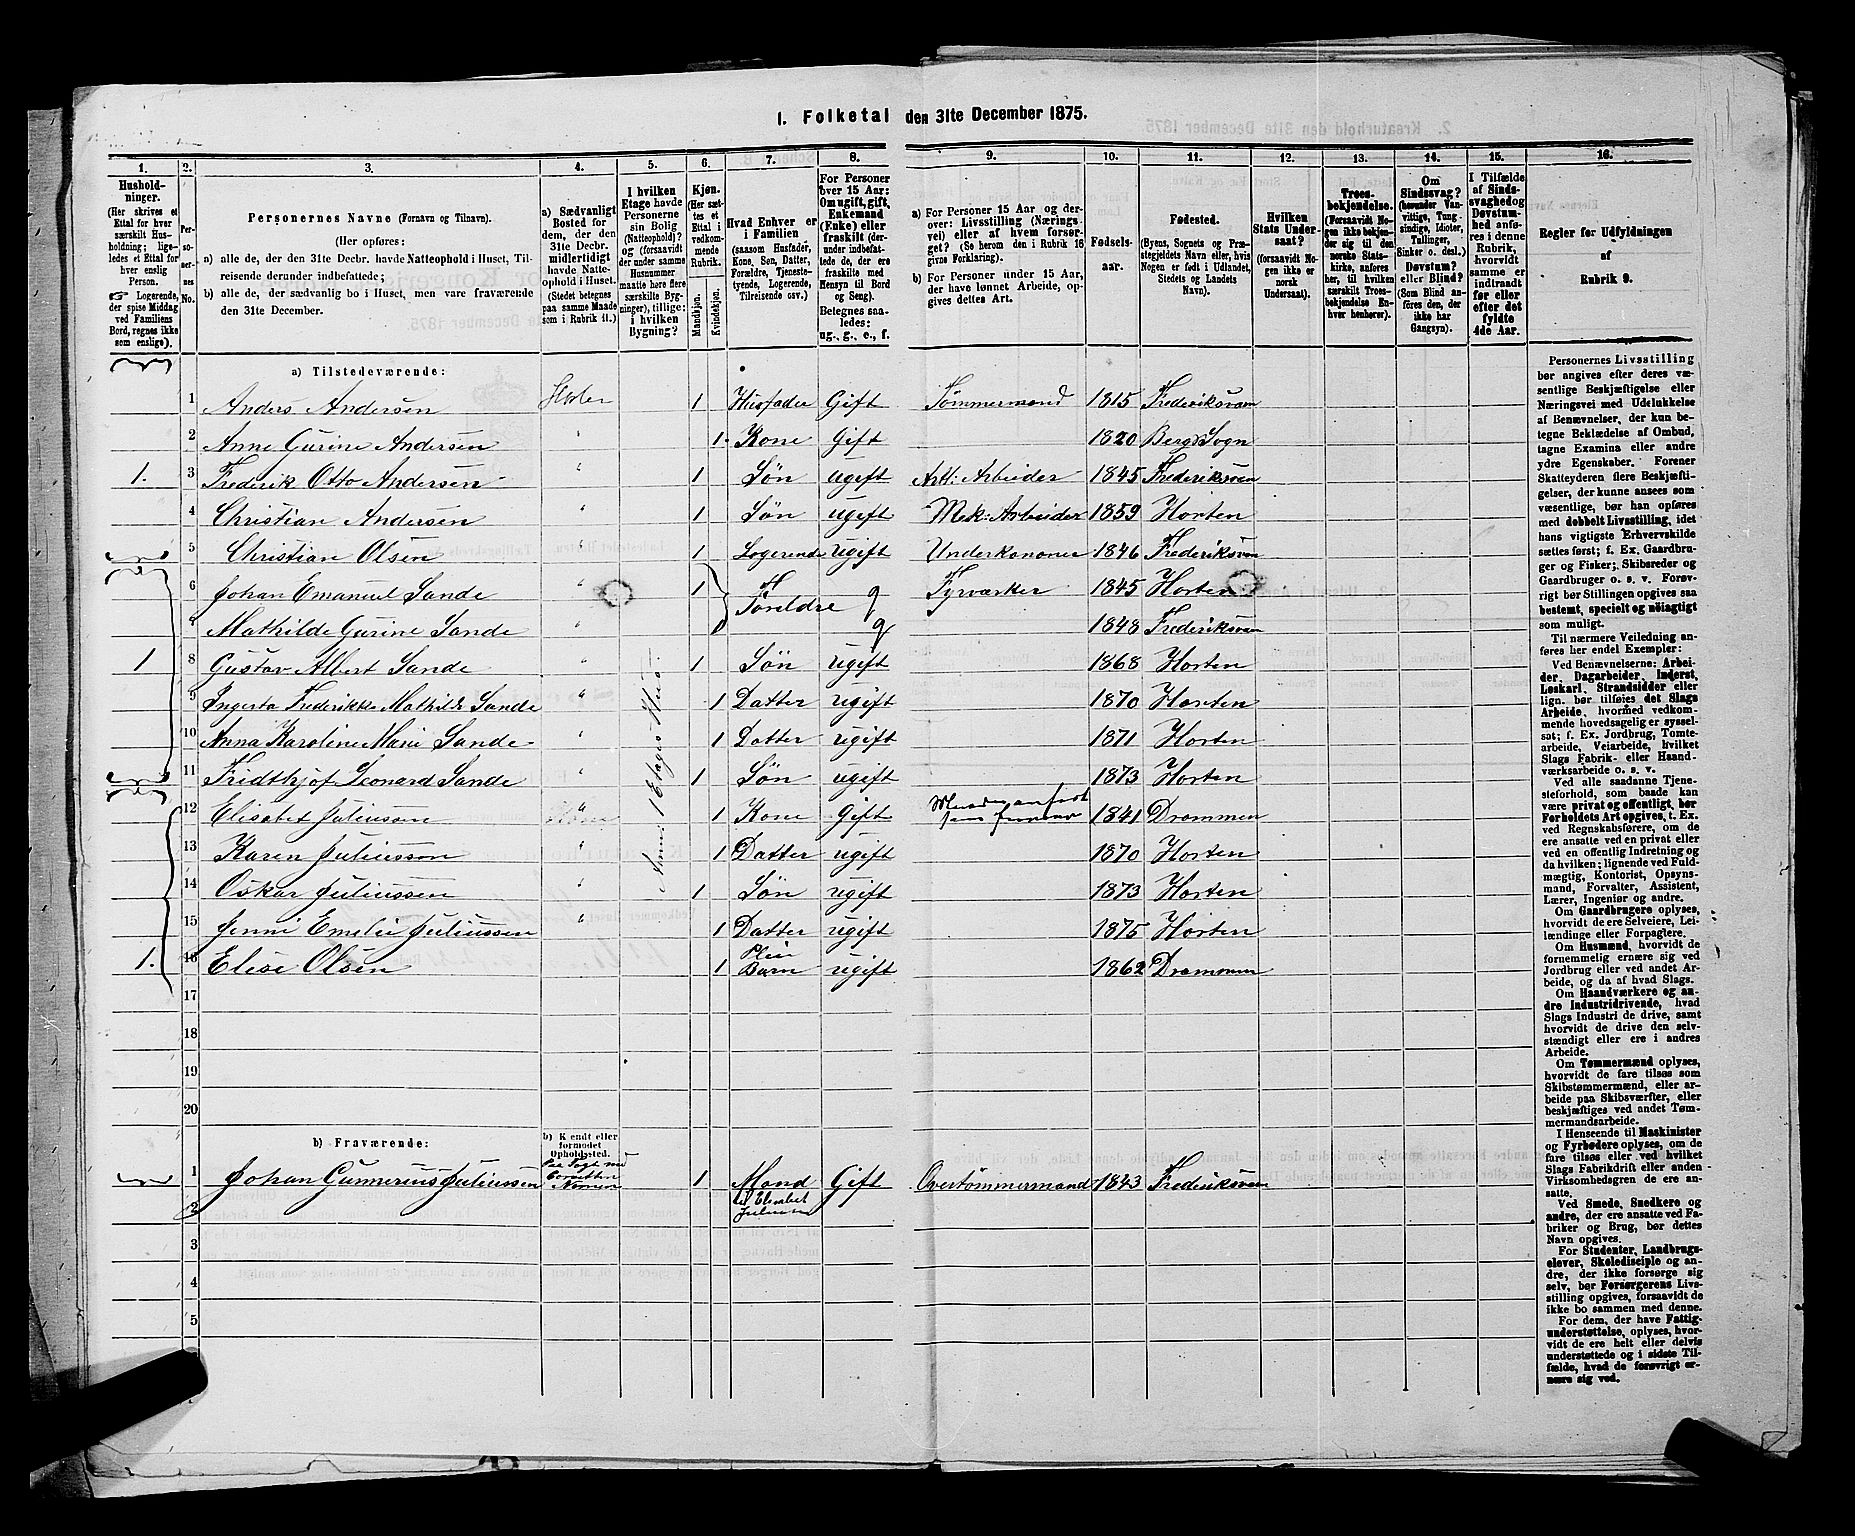 1. Folketal den 31te December 1875.
1. 2. 3. 4. 5. 6. 7. 8. 9. 10. 11. 12. 13. 14. 15. 16.
Hushold-
ninger.
(Her skrives et
Ettal for hver
særskilt Hus-
holdning; lige-
ledes et Ettal for
hver enslig
Person.
☞ Logerende,
der spise Middag
ved Familiens
Bord, regnes ikke
som enslige).
Per-
so-
ner-
nes
No.
Personernes Navne (Fornavn og Tilnavn).
(Her opføres:
a) alle de, der den 31te Decbr. havde Natteophold i Huset, Til-
reisende derunder indbefattede;
b) alle de, der sædvanlig bo i Huset, men vare fraværende
den 31te December.
a) Sædvanligt
Bosted for
dem, der den
31te Decbr.
midlertidigt
havde Natte-
ophold i Huset.
(Stedet betegnes
paa samme Maade
som i Rubrik 11.)
I hvilken
Etage havde
Personerne
sin Bolig
(Natteophold)?
og (forsaavidt
der under samme
Husnummer
maatte høre flere
særskilte Byg-
ninger), tillige:
i hvilken
Bygning?
Kjøn.
(Her sæt-
tes et
Ettal i
vedkom-
mende
Rubrik.
Mandkjøn.
Kvindekjøn.
Hvad Enhver er
i Familien
(saasom Husfader,
Kone, Søn, Datter,
Forældre, Tjeneste-
tyende, Logerende,
Tilreisende osv.)
For Personer
over 15 Aar:
Om ugift, gift,
Enkemand
(Enke) eller
fraskilt (der-
under indbefat-
tede de, der ere
fraskilte med
Hensyn til Bord
og Seng).
Betegnes saa-
ledes:
ug., g., e., f.
a) For Personer 15 Aar og der-
over: Livsstilling (Nærings-
vei) eller af hvem forsør-
get? (Se herom den i Rubrik 16
givne Forklaring).
b) For Personer under 15 Aar,
der have lønnet Arbeide, op-
gives dettes Art.
Fødsels-
aar.
Fødested.
(Byens, Sognets og Præ-
stegjeldets Navn eller, hvis
Nogen er født i Udlandet,
Stedets og Landets
Navn).
Hvilken
Stats Under-
saat?
(forsaavidt No-
gen ikke er
norsk
Undersaat).
Troes-
bekjendelse.
(Forsaavidt No-
gen ikke bekjen-
der sig til den
norske Stats-
kirke, anføres
her, til hvilken
særskilt Troes-
bekjendelse En-
hver henhører).
Om
Sindssvag?
(herunder Van-
vittige, Tung-
sindige, Idioter,
Tullinger,
Sinker o. desl.)
Døvstum?
eller Blind?
(Som Blind an-
føres den, der
ikke har
Gangsyn).
I Tilfælde
af Sinds-
svaghed og
Døvstum-
hed anfø-
res i denne
Rubrik,
hvorvidt
samme er
indtraadt
før eller
efter det
fyldte
4de Aar.
Regler for Udfyldningen
af
Rubrik 9.
a) Tilstedeværende:
1 Anders Andersen 1 Husfader Gift Tømmermand 1815 Frederiksværn
2 Anne Gurine Andersen " 1 Kone Gift 1820 Bergs Sogn
1. 3 Frederik Otto Andersen " 1 Søn ugift Artl: Arbeider 1845 Frederiksværn
4 Christian Andersen " 1 Søn ugift Mek: Arbeider 1859 Horten
5 Christian Olsen " 1 Logerende ugift Underkanoner 1846 Frederiksværn
6 Johan Emanuel Sande " 1 Foreldre g Fyrværker 1845 Horten
7 Mathilde Gurine Sande " g 1848 Frederiksværn
1 8 Gustav Albert Sande " 1 Søn ugift 1868 Horten
9 Ingerta Frederikke Mathilde Sande " 1 Datter ugift 1870 Horten
10 Anna Karoline Marie Sande " 1 Datter ugift 1871 Horten
11 Fridthjof Leonard Sande " 1 Søn ugift 1873 Horten
12 Elisabet Juliussen " 1 Kone Gift 1841 Drammen
13 Karen Juliussen " 1 Datter ugift 1870 Horten
14 Oskar Juliussen " 1 Søn ugift 1873 Horten
15 Jenni Emelie Juliussen " 1 Datter ugift 1875 Horten
1. 16 Elise Olsen 1 Pleie Barn ugift 1862 Drammen
1 Etages Hus
17
18
19
20
b) Fraværende:
b) Kjendt eller
formodet
Opholdssted.
1 Johan Gunnerius Juliussen Paa Togt med Corvetten Nornen 1 Mand til Elisabet Juliussen Gift Overtømmermand 1843 Frederiksværn
2
3
4
5
Personernes Livsstilling
bør angives efter deres væ-
sentlige Beskjæftigelse eller
Næringsvei med Udelukkelse
af Benævnelser, der kun be-
tegne Beklædelse af Ombud,
tagne Examina eller andre
ydre Egenskaber. Forener
Skatteyderen flere Beskjæfti-
gelser, der kunne ansees som
væsentlige, bør han opføres
med dobbelt Livsstilling, idet
hans vigtigste Erhvervskilde
sættes først; f. Ex. Gaardbru-
ger og Fisker; Skibsreder og
Gaardbruger o. s. v. Forøv-
rigt bør Stillingen opgives saa
bestemt, specielt og nøiagtigt
som muligt.
Til nærmere Veiledning an-
føres her endel Exempler:
Ved Benævnelserne: Arbei-
der, Dagarbeider, Inderst,
Løskarl, Strandsidder eller
lign. bør tilføies det Slags
Arbeide, hvormed vedkom-
mende hovedsagelig er syssel-
sat; f. Ex. Jordbrug, Tomte-
arbeide, Veiarbeide, hvilket
Slags Fabrik- eller Haand-
værksarbeide o. s. v.
Ved alle saadanne Tjene-
steforhold, som baade kan
være privat og offentligt, bør
Forholdets Art opgives, t. Ex.
ved Regnskabsførere, om de
ere ansatte ved en privat eller
ved en offentlig Indretning og
da hvilken; lignende ved Fuld-
mægtig, Kontorist, Opsyns-
mand, Forvalter, Assistent,
Lærer, Ingeniør og andre.
Om Gaardbrugere oplyses,
hvorvidt de ere Selveiere, Lei-
lændinge eller Forpagtere.
Om Husmænd, hvorvidt de
fornemmelig ernære sig ved
Jordbrug eller ved andet Ar-
beide, og da af hvad Slags.
Om Haandværkere og an-
dre Industridrivende, hvad
Slags Industri de drive, samt
hvorvidt de drive den selv-
stændigt eller ere i andres
Arbeide.
Om Tømmermænd oplyses,
hvorvidt de fare tilsøs som
Skibstømmermænd, eller ar-
beide paa Skibsværfter, eller
beskjæftiges ved andet Tøm-
mermandsarbeide.
I Henseende til Maskinister
og Fyrbødere oplyses, om de
fare tilsøs eller ved hvilket
Slags Fabrikdrift eller anden
Virksomhedsgren de ere an-
satte.
Ved Smede, Snedkere og
andre, der ere ansatte ved Fa-
briker og Brug, bør dettes
Navn opgives.
For Studenter, Landbrugs-
elever, Skoledisciple og an-
dre, der ikke forsørge sig
selv, bør Forsørgerens Livs-
stilling opgives, forsaavidt de
ikke bo sammen med denne.
For dem, der have Fattig-
understøttelse, oplyses, hvor-
vidt de ere helt eller delvis
understøttede og i sidste Til-
fælde, hvad de forøvrigt er-
nære sig ved.